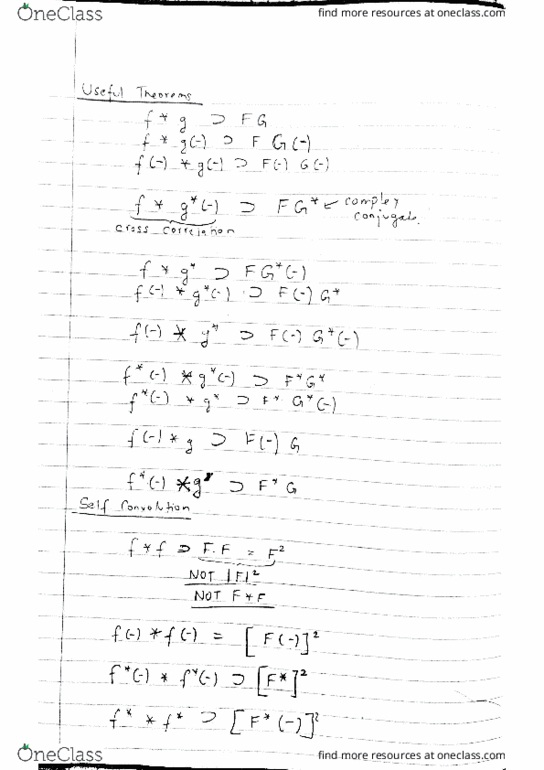 OneClass
find more resources at oneclass.com
Useful Theorems
f * g ⊃ F G
f * g(-) ⊃ F G(-)
f(-) * g(-) ⊃ F(-) G(-)
f * g*(-) ⊃ F G* ← complex conjugate.
cross correlation
f * g* ⊃ F G*(-)
f(-) * g*(-) ⊃ F(-) G*
f(-) * g* ⊃ F(-) G*(-)
f*(-) * g*(-) ⊃ F* G*
f*(-) * g* ⊃ F* G*(-)
f(-) * g ⊃ F(-) G
f*(-) * g ⊃ F* G
Self Convolution
f * f ⊃ F.F = F²
NOT |F|²
NOT F * F
f(-) * f(-) = [F(-)]²
f*(-) * f*(-) ⊃ [F*]²
f* * f* ⊃ [F*(-)]²
OneClass
find more resources at oneclass.com